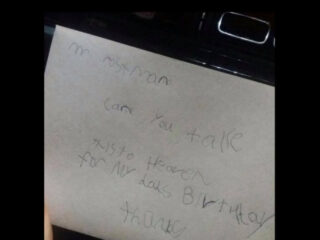 mr Postman
can you take
this to Heaven
for my dads Birthday